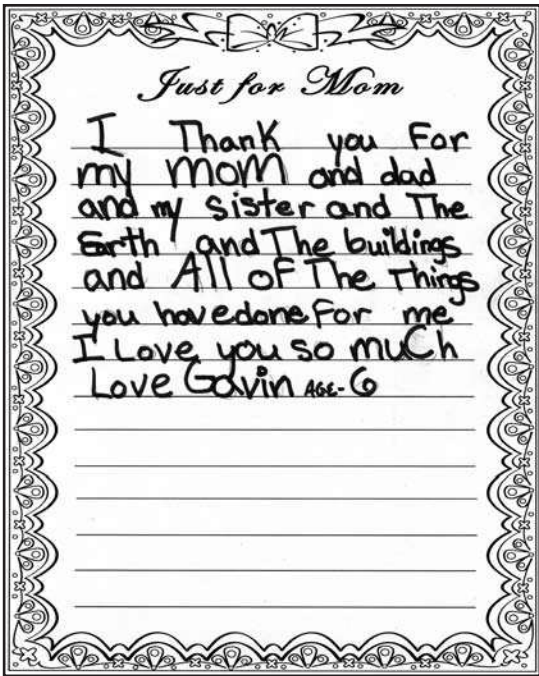 Just for Mom
I Thank you For
my MOM and dad
and my Sister and The
Earth and The buildings
and All oF The Things
you have done For me
I Love you so muCh
Love Gavin AGE-6